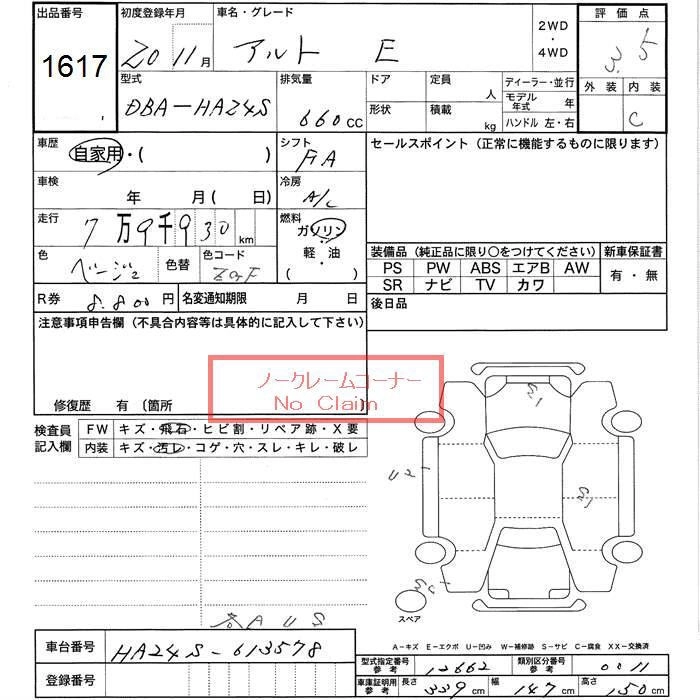 出品番号 初度登録年月 車名・グレード 2WD・4WD 評価点
1617 20 11月 アルト E 3.5
型式 排気量 ドア 定員 人 ディーラー・並行 外装 内装
DBA-HA24S 660cc 形状 積載 kg モデル年式 年 C
ハンドル 左・右
車歴 自家用・( ) シフト FA セールスポイント(正常に機能するものに限ります)
車検 年 月(日) 冷房 A/C
走行 7万9千930km 燃料 ガソリン・軽油( )
色 ベージュ 色替 色コード 装備品(純正品に限り〇をつけてください) 新車保証書
PS PW ABS エアB AW 有・無
SR ナビ TV カワ
R券 8.800円 名変通知期限 月 日 後日品
注意事項申告欄(不具合内容等は具体的に記入して下さい)
ノークレームコーナー
No Claim
修復歴 有 〔箇所 〕
検査員記入欄 FW キズ・飛石・ヒビ割・リペア跡・X要
内装 キズ・汚レ・コゲ・穴・スレ・キレ・破レ
スペア
A-キズ E-エクボ U-凹み W-補修跡 S-サビ C-腐食 XX-交換済
車台番号 HA24S-613578
型式指定番号 参考 12662 類別区分番号 参考 0011
登録番号
車庫証明用 参考 長さ 339cm 幅 147cm 高さ 150cm